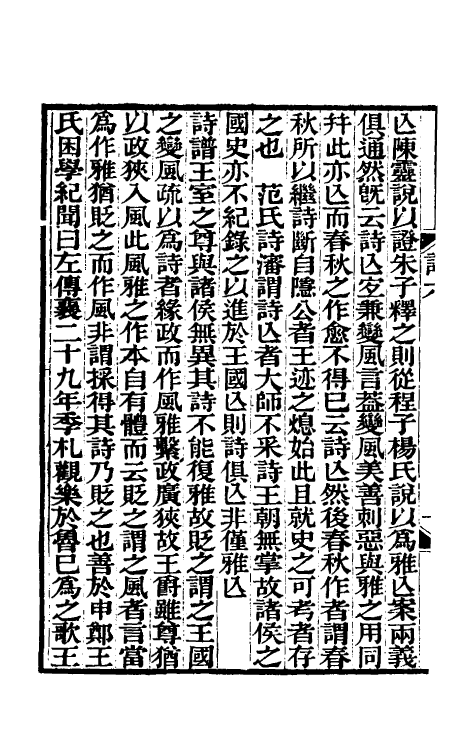 亾陳靈說以證朱子釋之則從程子楊氏說以爲雅亾案兩義
俱通然旣云詩亾安兼變風言葢變風美善刺惡與雅之用同
幷此亦亾而春秋之作愈不得已云詩亾然後春秋作者謂春
秋所以繼詩斷自隱公者王迹之熄始此且就史之可考者存
之也　范氏詩瀋謂詩亾者大師不采詩王朝無掌故諸侯之
國史亦不紀錄之以進於王國亾則詩俱亾非僅雅亾
詩譜王室之尊與諸侯無異其詩不能復雅故貶之謂之王國
之變風疏以爲詩者緣政而作風雅繫政廣狹故王爵雖尊猶
以政狹入風此風雅之作本自有體而云貶之謂之風者言當
爲作雅猶貶之而作風非謂採得其詩乃貶之也善於申鄭王
氏困學紀聞曰左傳襄二十九年季札觀樂於魯已爲之歌王